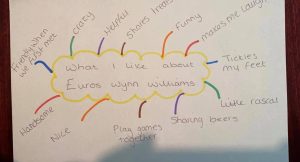 Friendly when
we first met
Crazy
Helpful
Shares treats
Funny
makes me laugh
Tickles
my feet
Little rascal
Sharing beers
Play games
together
Nice
Handsome
What I like about
Euros Wynn Williams